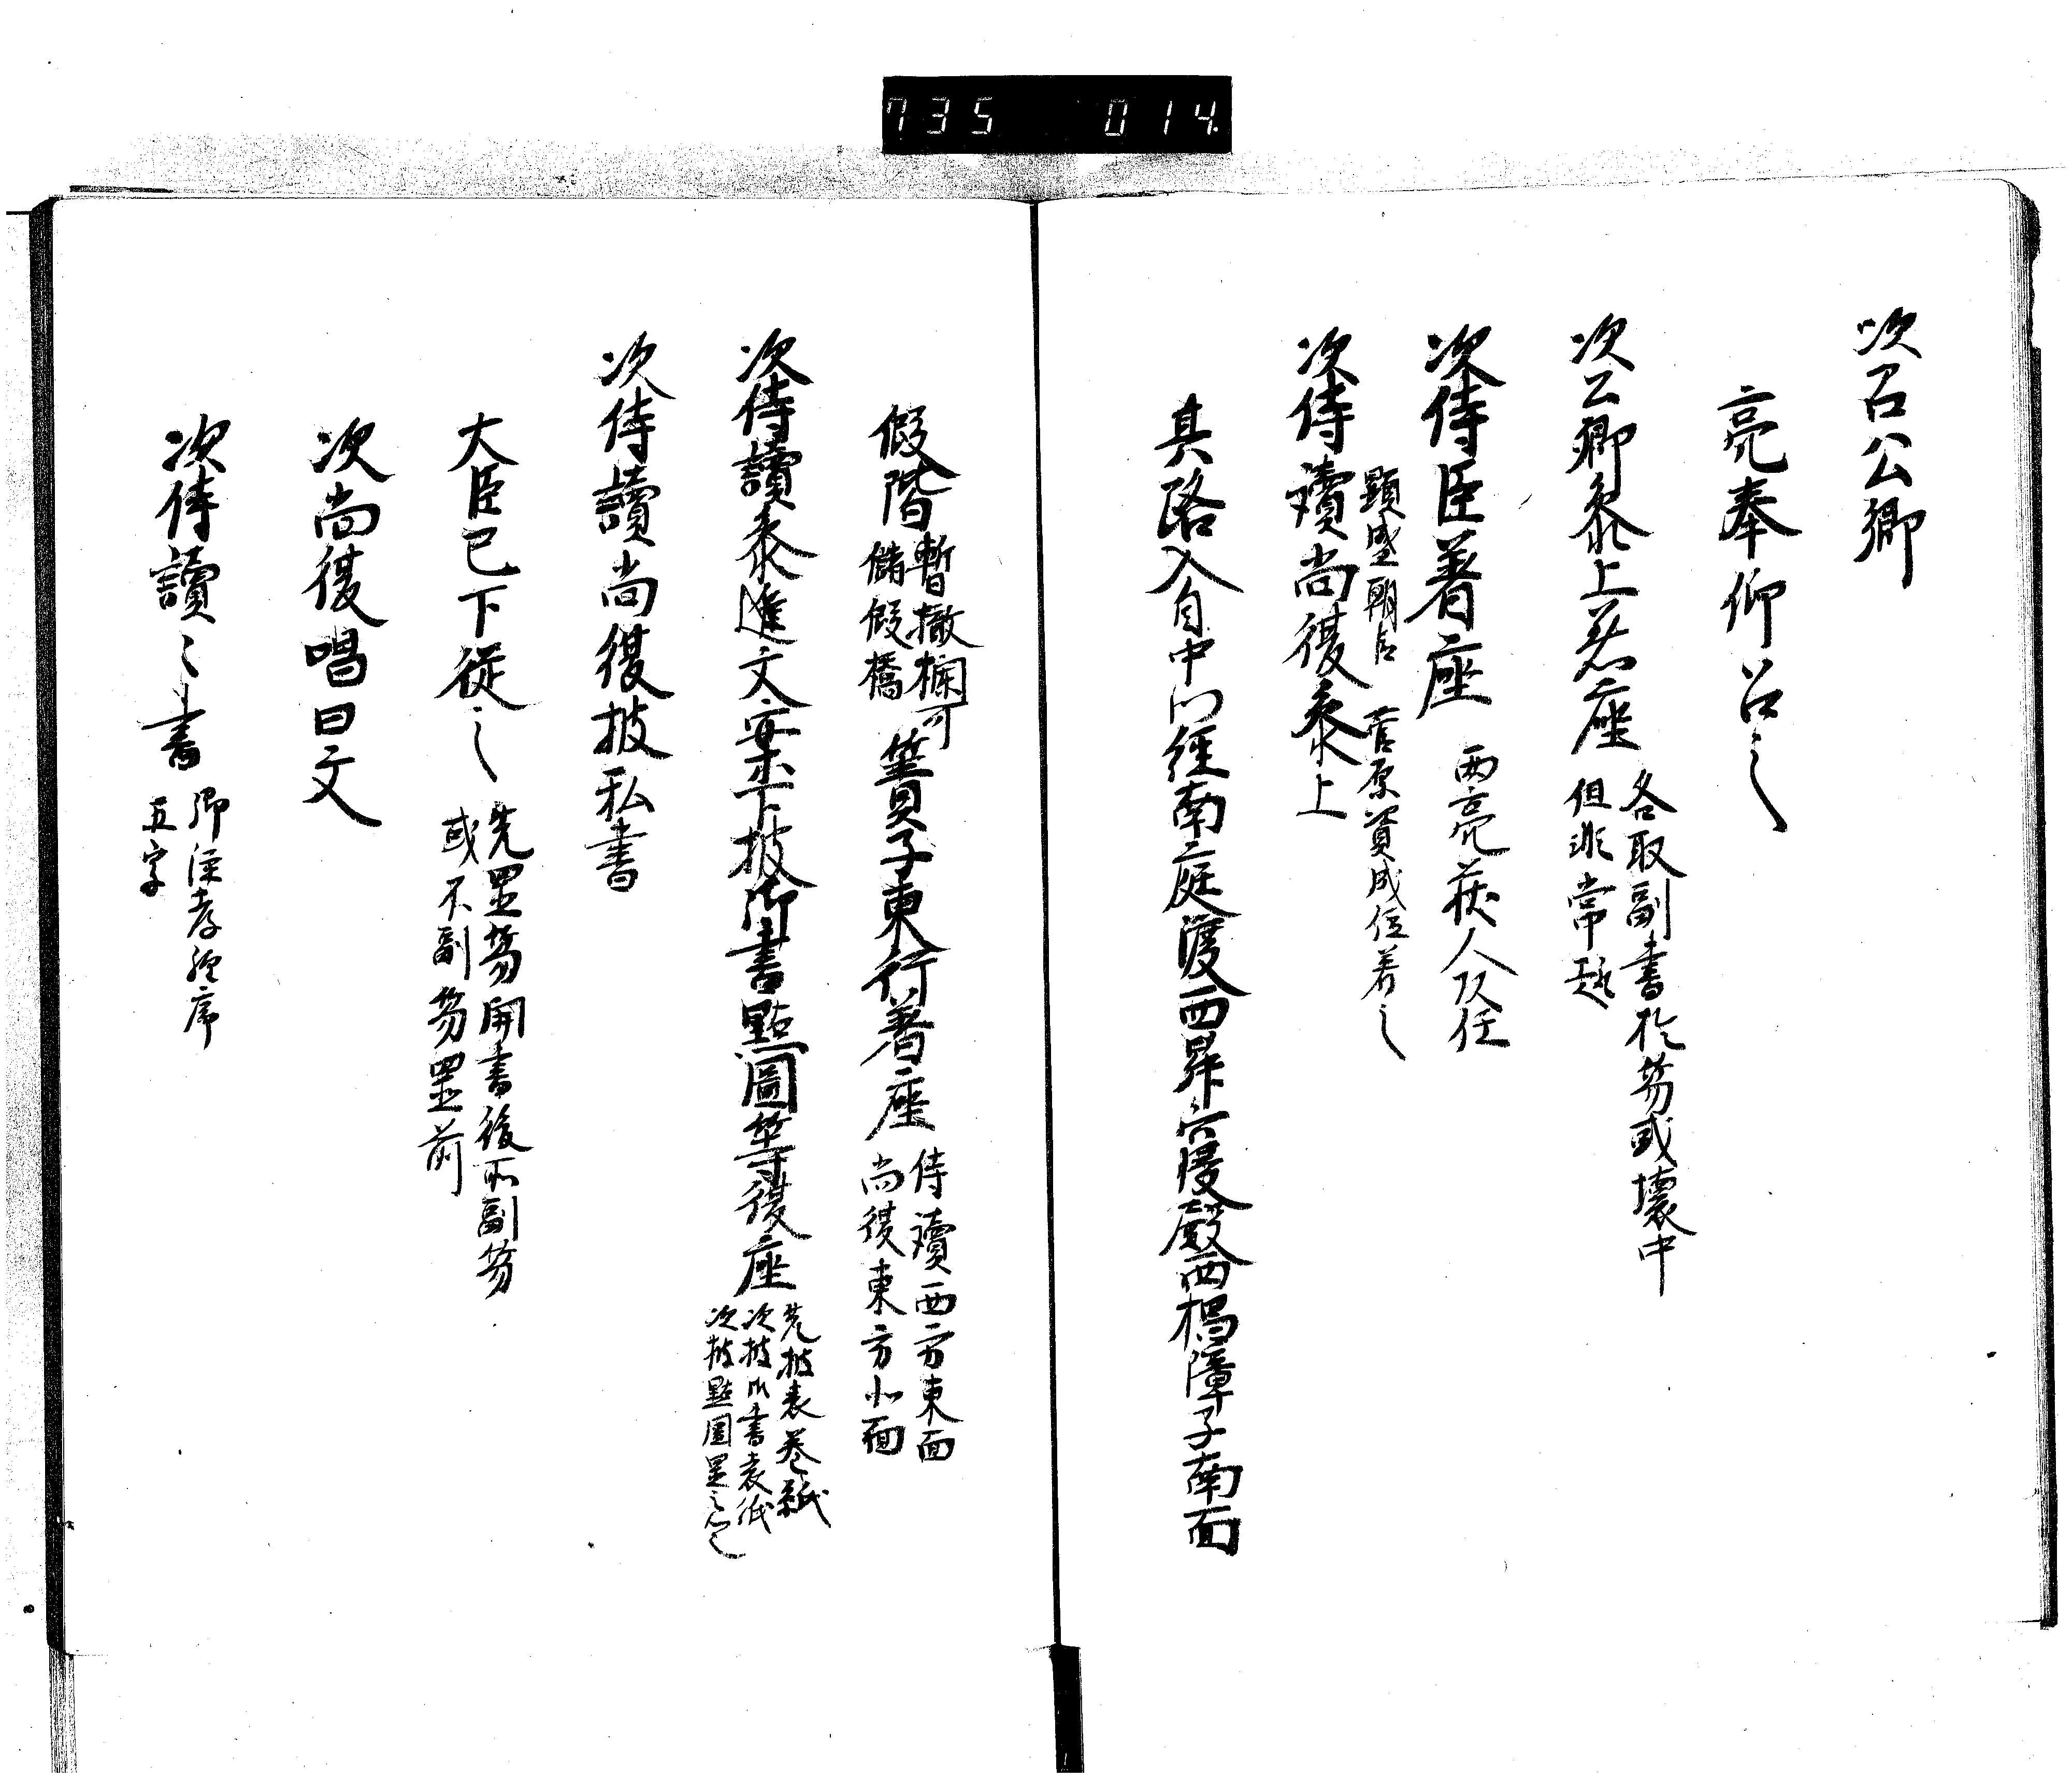 735 014
次召公卿
亮奉仰召之
次公卿參上着座
各取副書於笏或壞中
但非常趣
次侍臣著座
兩亮蔵人
顕盛朝臣 菅原資成
次侍讀尚復參上
其路入自中門經南庭渡西
殿西
障子南面
假階
暫撤欄
儲假橋
簀子東行著座
侍讀西方東面
尚復東方北面
次侍讀參進文案下披御書點圖等復座
先披表卷紙
次披御書表紙
次披點圖置之
次侍讀尚復披私書
大臣已下從之
先置笏開書後副笏
或不副笏置前
次尚復唱曰文
次侍讀々書
御注孝經序
五字